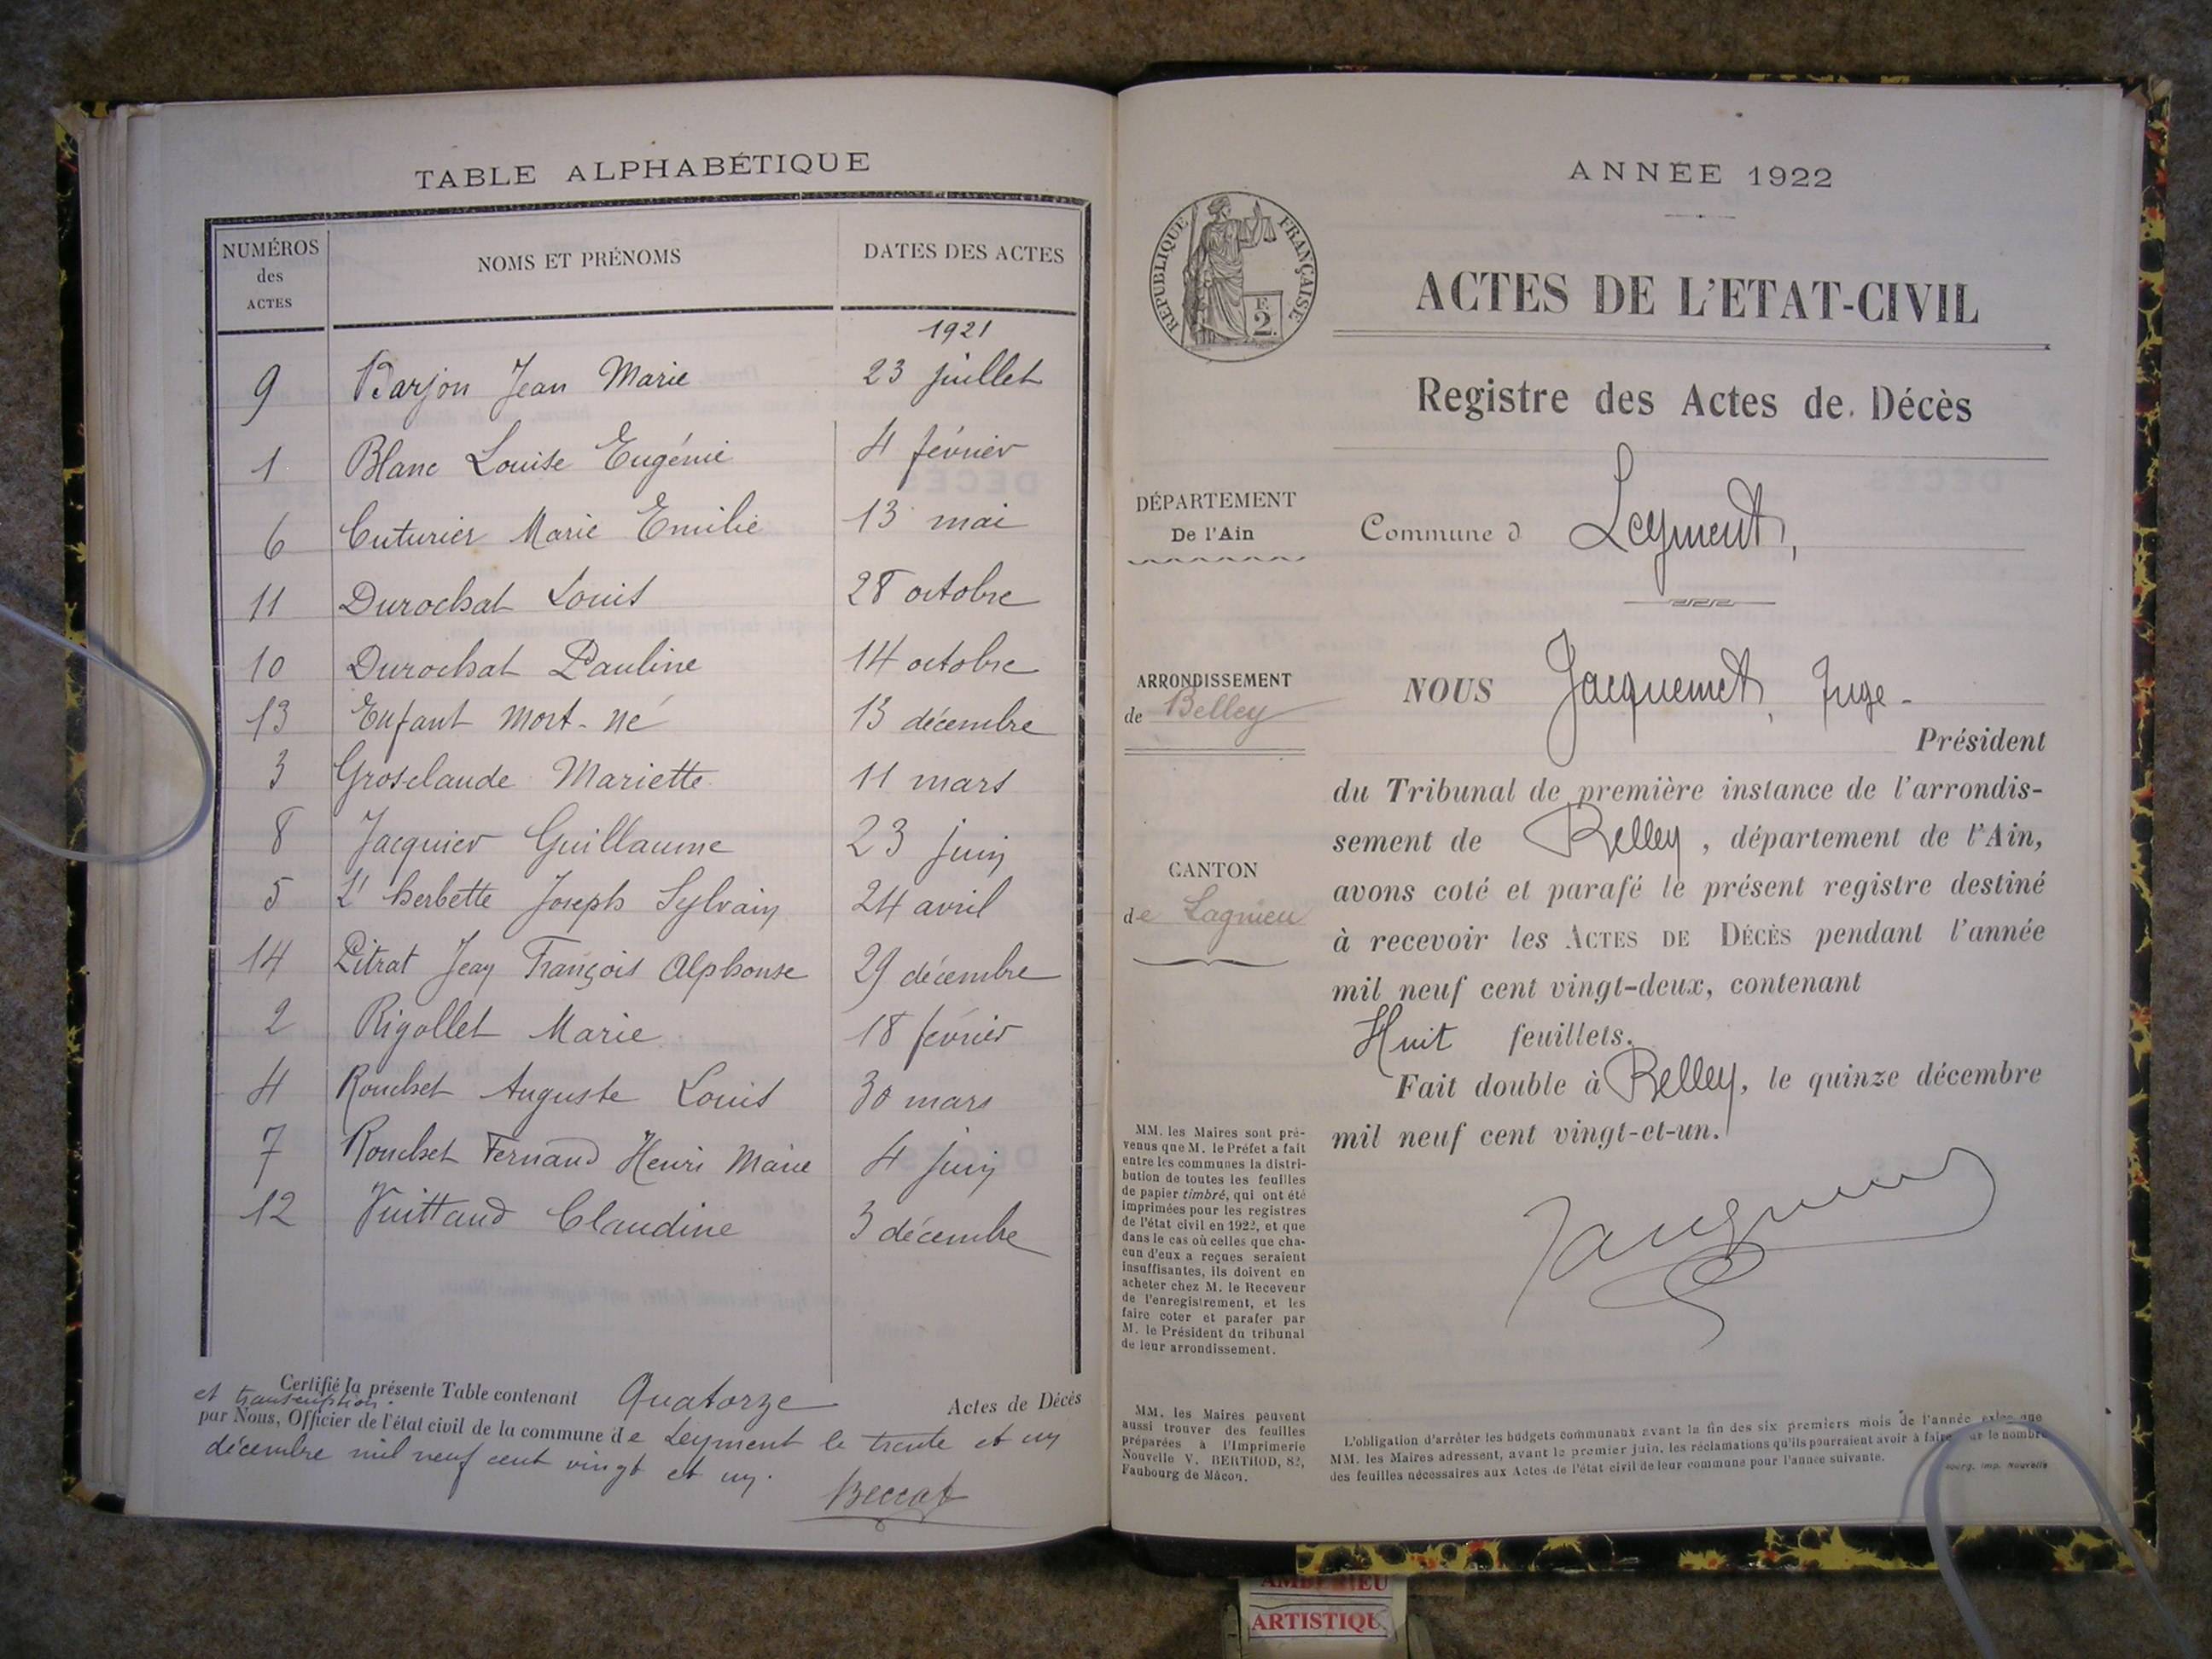 TABLE ALPHABÉTIQUE
NUMÉROS des ACTES NOMS ET PRÉNOMS DATES DES ACTES
1921
9 Barjon Jean Marie 23 juillet
1 Blanc Louise Eugénie 4 février
6 Cuturier Marie Emilie 13 mai
11 Durochat Louis 28 octobre
10 Durochat Pauline 14 octobre
13 Enfant mort-né 13 décembre
3 Grosclaude Mariette 11 mars
8 Jacquier Guillaume 23 juin
5 L'herbette Joseph Sylvain 24 avril
14 Pitrat Jean François Alphonse 29 décembre
2 Rigollet Marie 18 février
4 Rouchet Auguste Louis 30 mars
7 Rouchet Fernand Henri Marie 4 juin
12 Vuittand Claudine 3 décembre
Certifié la présente Table contenant Quatorze Actes de Décès
et transcription.
par Nous, Officier de l'état civil de la commune de Leyment le trente et un
décembre mil neuf cent vingt et un.
Beccat
ANNÉE 1922
RÉPUBLIQUE FRANÇAISE
F.
2.
ACTES DE L'ETAT-CIVIL
Registre des Actes de Décès
DÉPARTEMENT
De l'Ain
Commune d Leyment,
ARRONDISSEMENT
de Belley
CANTON
de Lagnieu
NOUS Jacquemet, Juge-
Président
du Tribunal de première instance de l'arrondis-
sement de Belley, département de l'Ain,
avons coté et parafé le présent registre destiné
à recevoir les ACTES DE DÉCÈS pendant l'année
mil neuf cent vingt-deux, contenant
Huit feuillets.
Fait double à Belley, le quinze décembre
mil neuf cent vingt-et-un.
MM. les Maires sont pré-
venus que M. le Préfet a fait
entre les communes la distri-
bution de toutes les feuilles
de papier timbré, qui ont été
imprimées pour les registres
de l'état civil en 1922, et que
dans le cas où celles que cha-
cun d'eux a reçues seraient
insuffisantes, ils doivent en
acheter chez M. le Receveur
de l'enregistrement, et les
faire coter et parafer par
M. le Président du tribunal
de leur arrondissement.
MM. les Maires peuvent
aussi trouver des feuilles
préparées à l'Imprimerie
Nouvelle V. BERTHOD, 82,
Faubourg de Mâcon.
L'obligation d'arrêter les budgets communaux avant la fin des six premiers mois de l'année exige que
MM. les Maires adressent, avant le premier juin, les réclamations qu'ils pourraient avoir à faire sur le nombre
des feuilles nécessaires aux Actes de l'état civil de leur commune pour l'année suivante.
Bourg. Imp. Nouvelle
ARTISTIQU